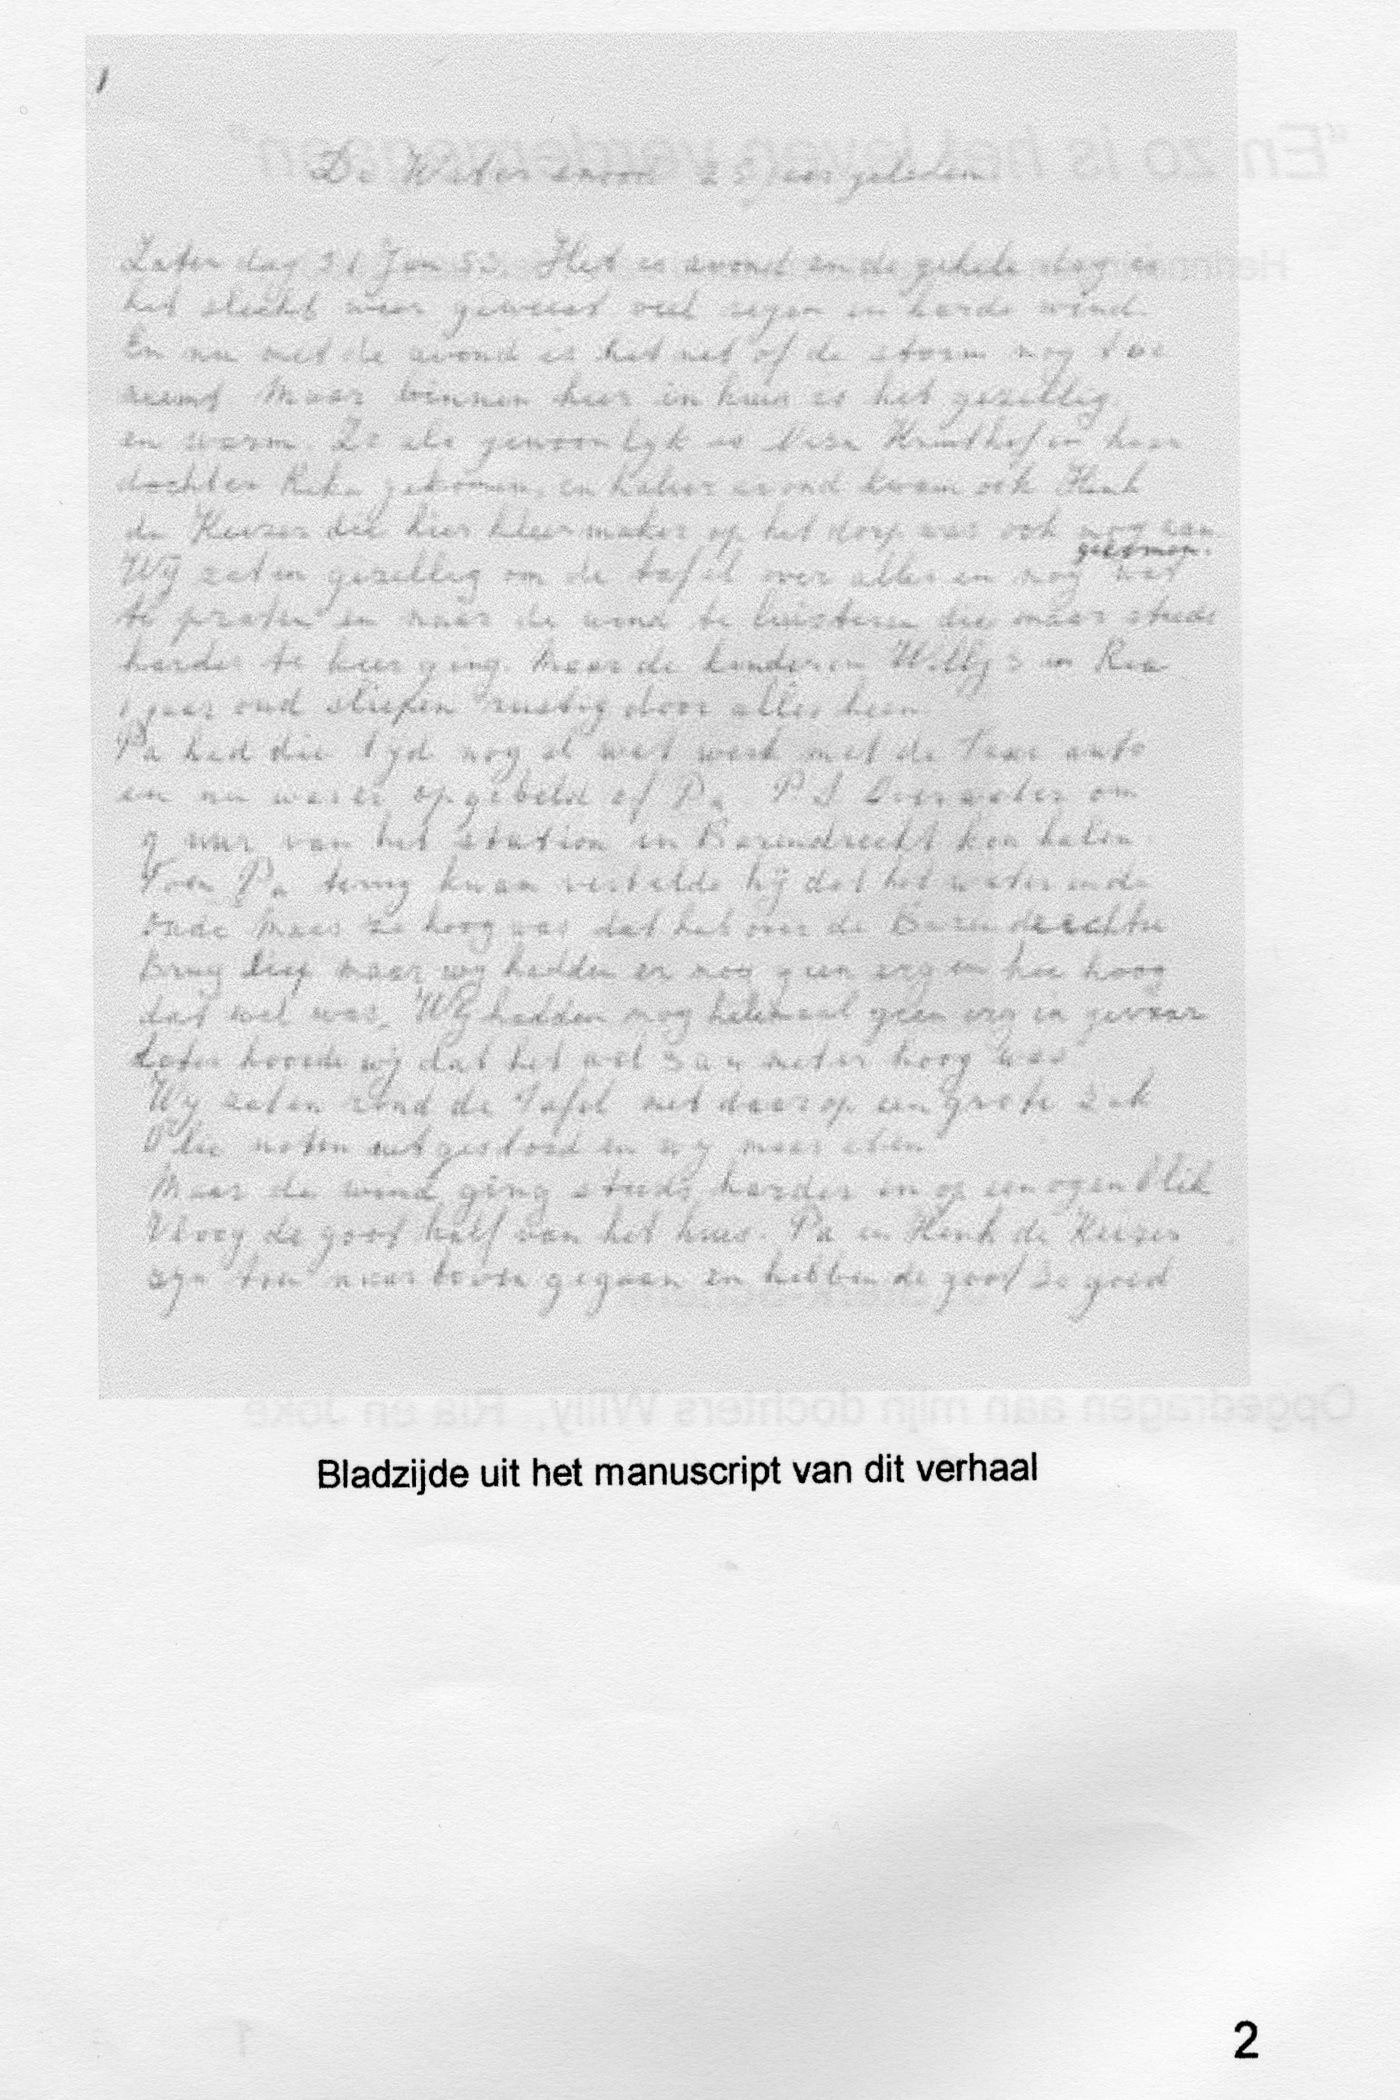 1
De Watersnood 25 jaar geleden
Zaterdag 31 Jan 53. Het is avond en de gehele dag is
het slecht weer geweest veel regen en harde wind.
En nu met de avond is het net of de storm nog toe
neemt Maar binnen hier in huis is het gezellig
en warm. Zo als gewoonlyk is en haar
dochter gekomen, en later avond kwam ook Henk
de Keizer die hier kleermaker op het dorp was ook nog aan
gekomen.
Wy zaten gezellig om de tafel over alles en nog wat
te praten en naar de wind te luisteren die maar steeds
harder te keer ging. Maar de kinderen Willy 3 en Ria
1 jaar oud sliepen rustig door alles heen
Pa had die tyd nog al wat werk met de Taxi auto
en nu was er opgebeld of Pa P.J om
9 uur van het station in Barendrecht kon halen.
Toen Pa terug kwam vertelde hij dat het water in de
oude Maas zo hoog was dat het over de Barendrechtse
Brug liep maar wy hadden er nog geen erg in hoe hoog
dat wel was, Wy hadden nog helemaal geen erg in gevaar
Later hoorde wy dat het wel 3 a 4 meter hoog was
Wy zaten rond de Tafel met daarop een grote zak
Olie noten uitgestort en wy maar eten
Maar de wind ging steeds harder en op een ogenblik
Vloog de goot half van het huis. Pa en Henk de Keizer
zyn toen naar boven gegaan en hebben de goot zo goed
Bladzijde uit het manuscript van dit verhaal
2